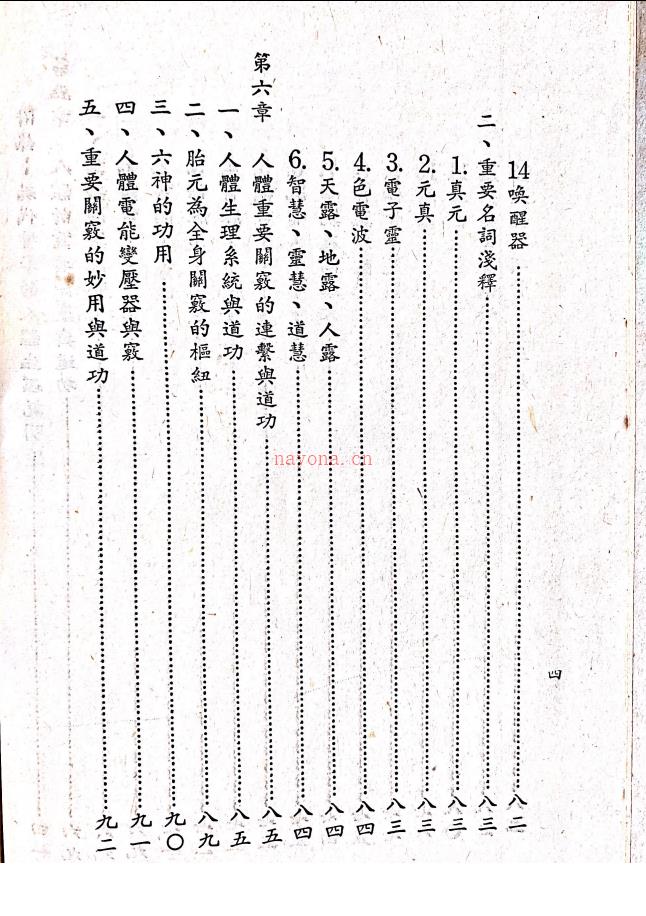 14喚醒器………八二
二、重要名詞淺釋………八三
1.真元………八三
2.元真………八三
3.電子靈………八三
4.色電波………八四
5.天露、地露、人露………八四
6.智慧、靈慧、道慧………八四
第六章 人體重要關竅的連繫與道功………八五
一、人體生理系統與道功………八五
二、胎元為全身關竅的樞紐………八九
三、六神的功用………九〇
四、人體電能變壓器與竅………九一
五、重要關竅的妙用與道功………九二
四
nayona.cn